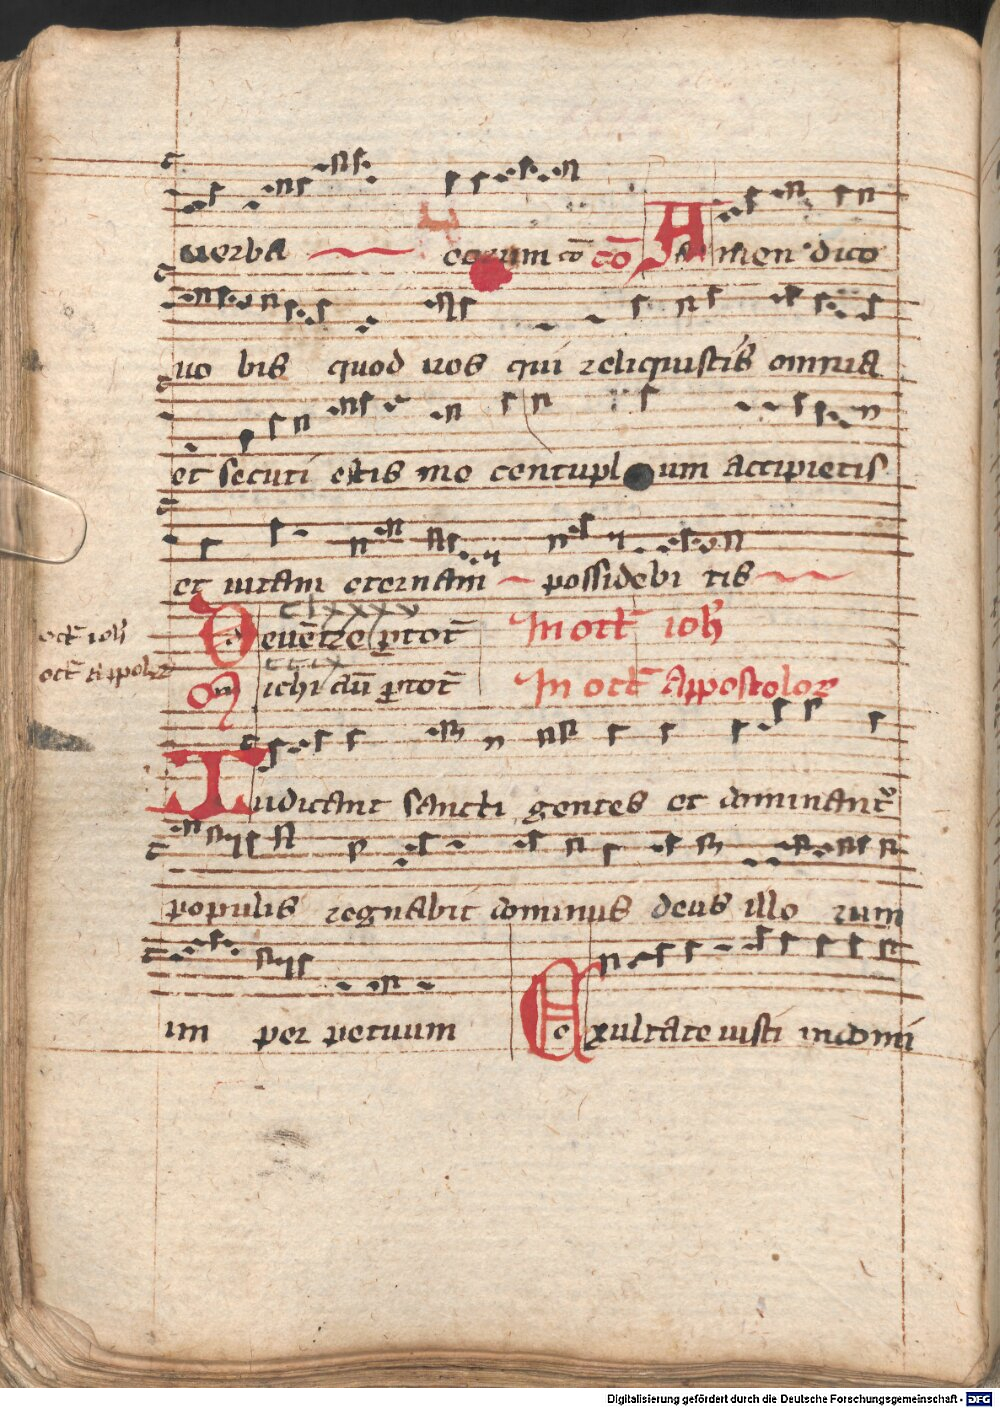 uerba eorum co co Amen dico
uo bis quod uos qui reliquistis omnia
et secuti estis me centupl um accipietis
et uitam eternam possidebi tis
clxxxv
oct ioh
De uētre p tot In oct ioh
cclx
oct appolor
Michi au p tot In oct Appostolor
Iudicant sancti gentes et dominant
populis regnabit dominus deus illo rum
im per petuum Exultate iusti in domi
Digitalisierung gefördert durch die Deutsche Forschungsgemeinschaft - DFG